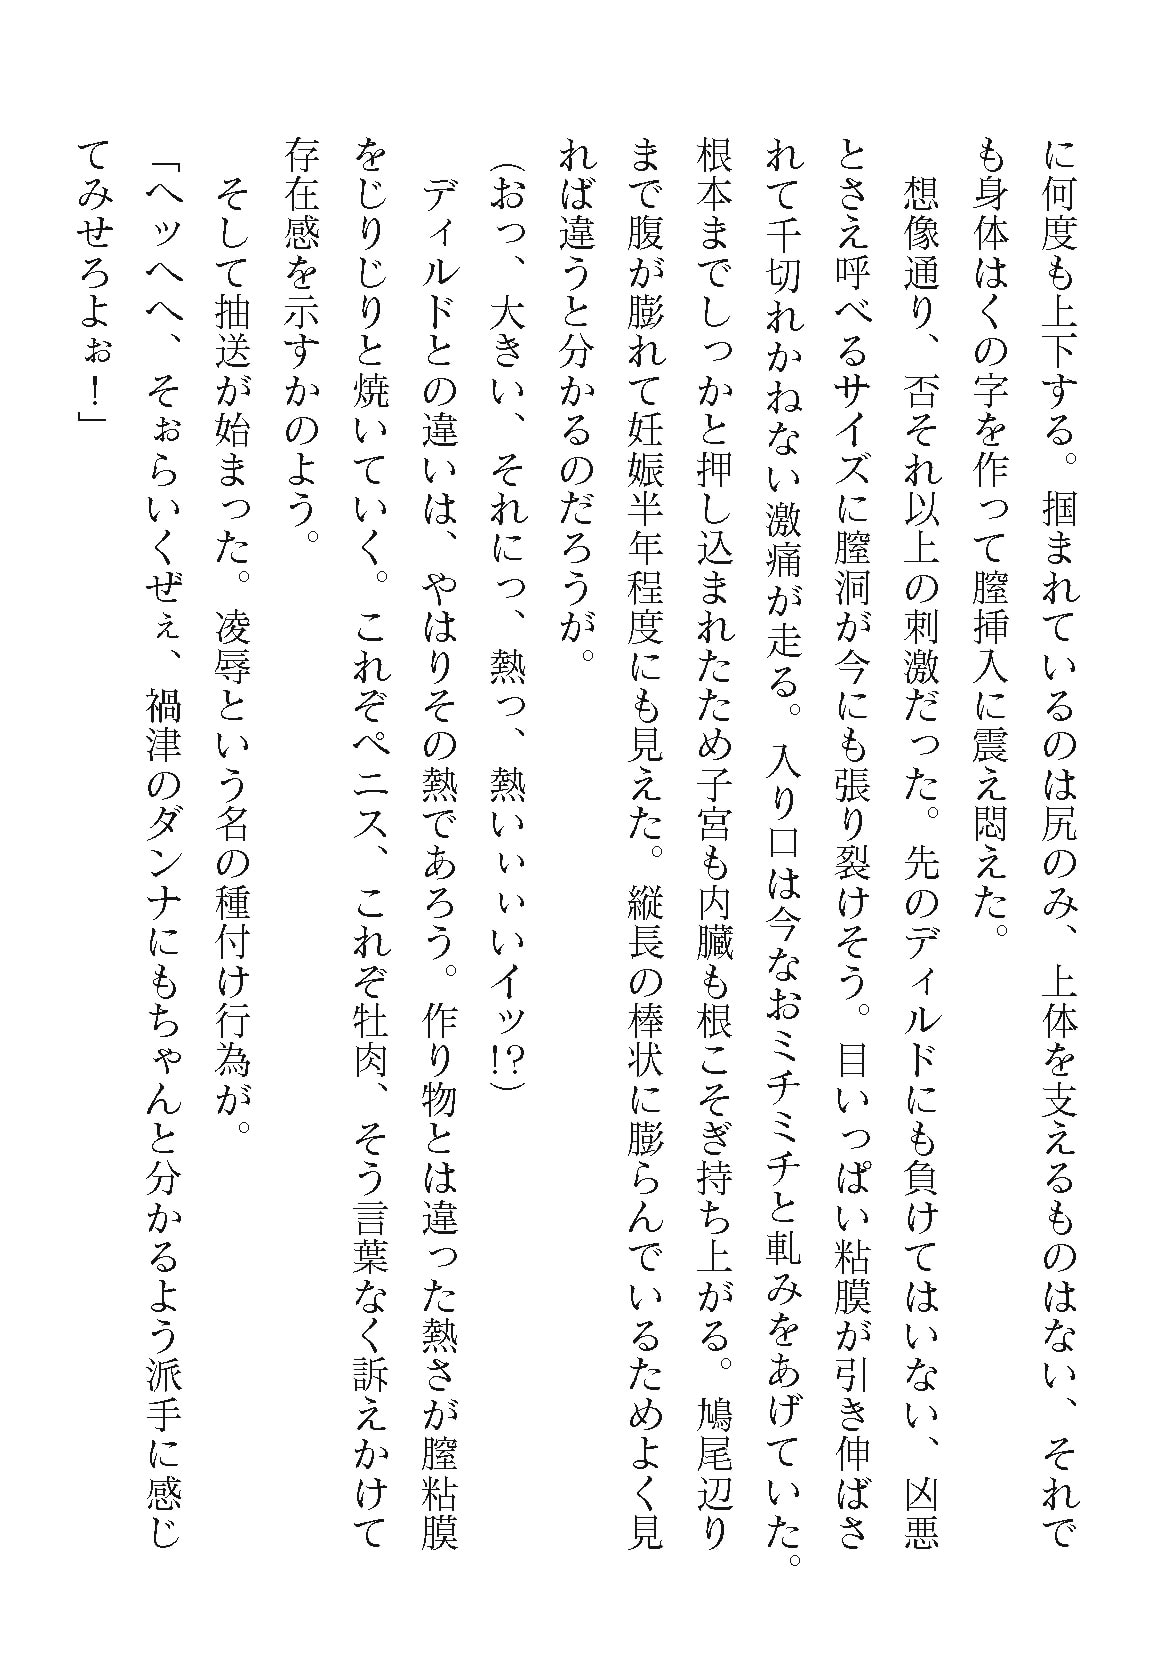 に何度も上下する。掴まれているのは尻のみ、上体を支えるものはない、それで
も身体はくの字を作って膣挿入に震え悶えた。
　想像通り、否それ以上の刺激だった。先のディルドにも負けてはいない、凶悪
とさえ呼べるサイズに膣洞が今にも張り裂けそう。目いっぱい粘膜が引き伸ばさ
れて千切れかねない激痛が走る。入り口は今なおミチミチと軋みをあげていた。
根本までしっかと押し込まれたため子宮も内臓も根こそぎ持ち上がる。鳩尾辺り
まで腹が膨れて妊娠半年程度にも見えた。縦長の棒状に膨らんでいるためよく見
れば違うと分かるのだろうが。
（おっ、大きい、それにっ、熱っ、熱いぃぃいイッ!?）
　ディルドとの違いは、やはりその熱であろう。作り物とは違った熱さが膣粘膜
をじりじりと焼いていく。これぞペニス、これぞ牡肉、そう言葉なく訴えかけて
存在感を示すかのよう。
　そして抽送が始まった。凌辱という名の種付け行為が。
「ヘッへへ、そぉらいくぜぇ、禍津のダンナにもちゃんと分かるよう派手に感じ
てみせろよぉ！」